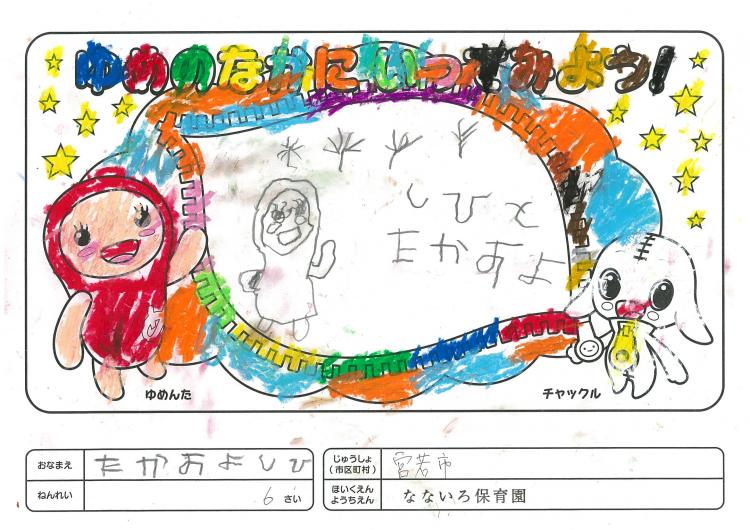 ゆめのなかにいってみよう!
しひと
たかおよ
ゆめんた
チャックル
おなまえ たかおよしひ
ねんれい 6 さい
じゅうしょ
(市区町村) 宮若市
ほいくえん
ようちえん なないろ保育園